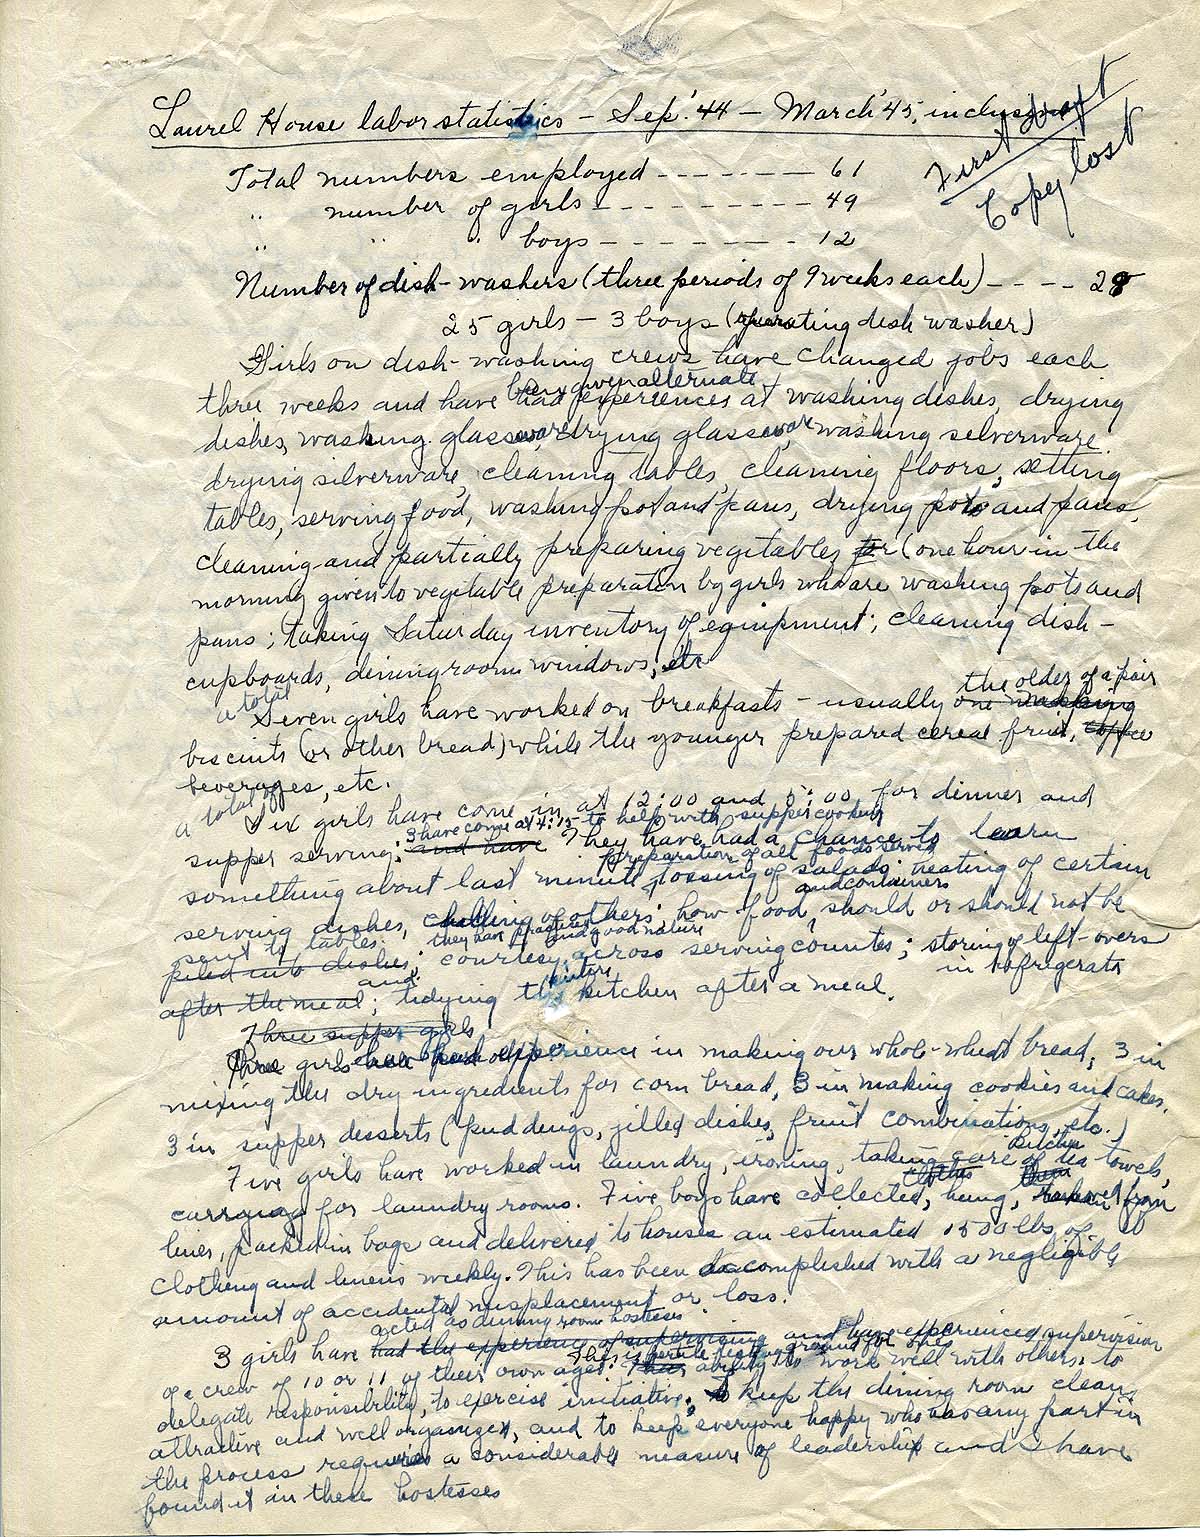 Laurel House labor statistics – Sep. '44 – March '45, inclusive
First draft
Copy lost
Total numbers employed ------- 61
" number of girls --------- 49
" " " boys ------- 12
Number of dish-washers (three periods of 9 weeks each) ---- 28
25 girls – 3 boys (operating dish washer)
Girls on dish-washing crews have changed jobs each
been given alternate
three weeks and have had experiences at washing dishes, drying
dishes, washing glassware, drying glassware, washing silverware
drying silverware, cleaning tables, cleaning floors, setting
tables, serving food, washing pots and pans, drying pots and pans,
cleaning and partially preparing vegetables for (one hour in the
morning given to vegetable preparation by girls who are washing pots and
pans; taking Saturday inventory of equipment; cleaning dish-
cupboards, dining room windows, etc
a total the older of a pair
Seven girls have worked on breakfasts – usually one making
biscuits (or other bread) while the younger prepared cereal fruit, coffee
beverages, etc.
a total of
Six girls have come in at 12:00 and 5:00 for dinner and
3 have come at 4:15 to help with supper cooking
supper serving; and have They have had a chance to learn
preparation of all foods served
something about last minute tossing of salads heating of certain
and containers
serving dishes, chilling of others; how food should or should not be
sent to tables they have practiced and good nature
piled into dishes; courtesy across serving counter; storing of left-overs
and entire in refrigerator
after the meal; tidying the kitchen after a meal.
Three supper girls
Three girls have had experience in making our whole-wheat bread, 3 in
mixing the dry ingredients for corn bread, 3 in making cookies and cakes,
3 in supper desserts (puddings, jelled dishes, fruit combinations, etc.)
kitchen
Five girls have worked in laundry, ironing, taking care of tea towels,
clothes them
carrying for laundry rooms. Five boys have collected, hung, removed from
lines, packed in bags and delivered to houses an estimated 1500 lbs. of
clothing and linens weekly. This has been accomplished with a negligible
amount of accidental misplacement or loss.
acted as dining room hostesses
3 girls have had the experience of supervising and have experienced supervision
This is fertile testing ground for ones
of a crew of 10 or 11 of their own ages. This ability to work well with others, to
delegate responsibility, to exercise initiative. To keep the dining room clean,
attractive and well organized, and to keep everyone happy who has any part in
the process requires a considerable measure of leadership and I have
found it in these hostesses